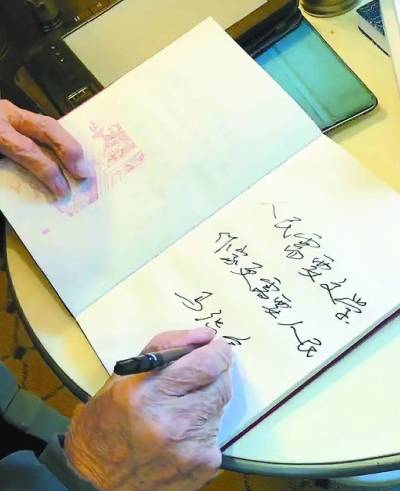 人民需要文学.
作家更需要人民
马识途